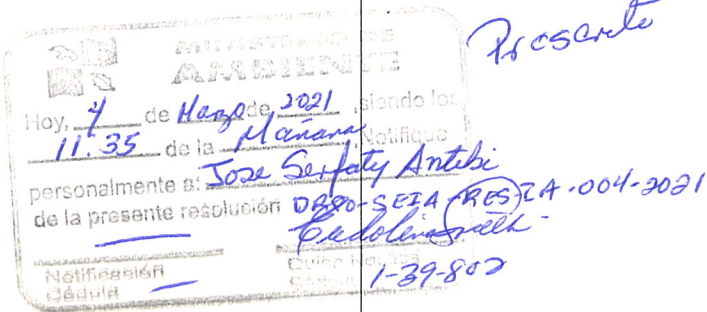 MINISTERIO DE
AMBIENTE
Hoy, 4 de Marzo de 2021, siendo los
11:35 de la Mañana Notifique
personalmente a: Jose Serfaty Antebi
de la presente resolución DRPO-SEIA-RES-IA-004-2021
Notificación
Cédula
1-39-802